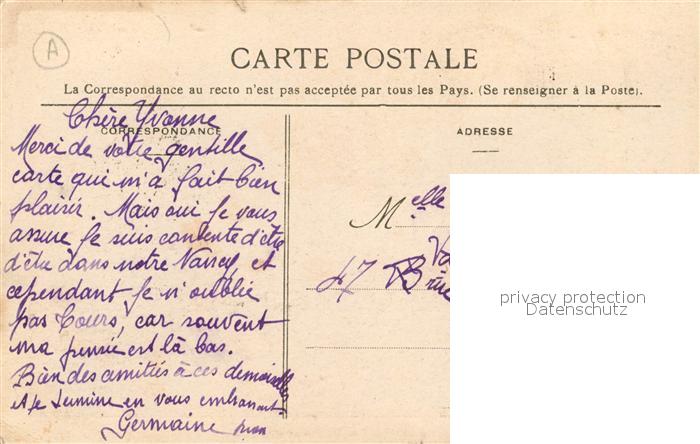 A
CARTE POSTALE
La Correspondance au recto n'est pas acceptée par tous les Pays. (Se renseigner à la Poste).
CORRESPONDANCE
ADRESSE
Chère Yvonne
Merci de votre gentille
carte qui m'a fait bien
plaisir. Mais oui je vous
assure je suis contente d'être
d'étu dans notre Nancy, et
cependant je n'oublie
pas Tours, car souvent
ma pensée est là bas.
Bien des amitiés à ces demoiselles
et je termine en vous embrassant.
Germaine
Melle
47 Bre
privacy protection
Datenschutz